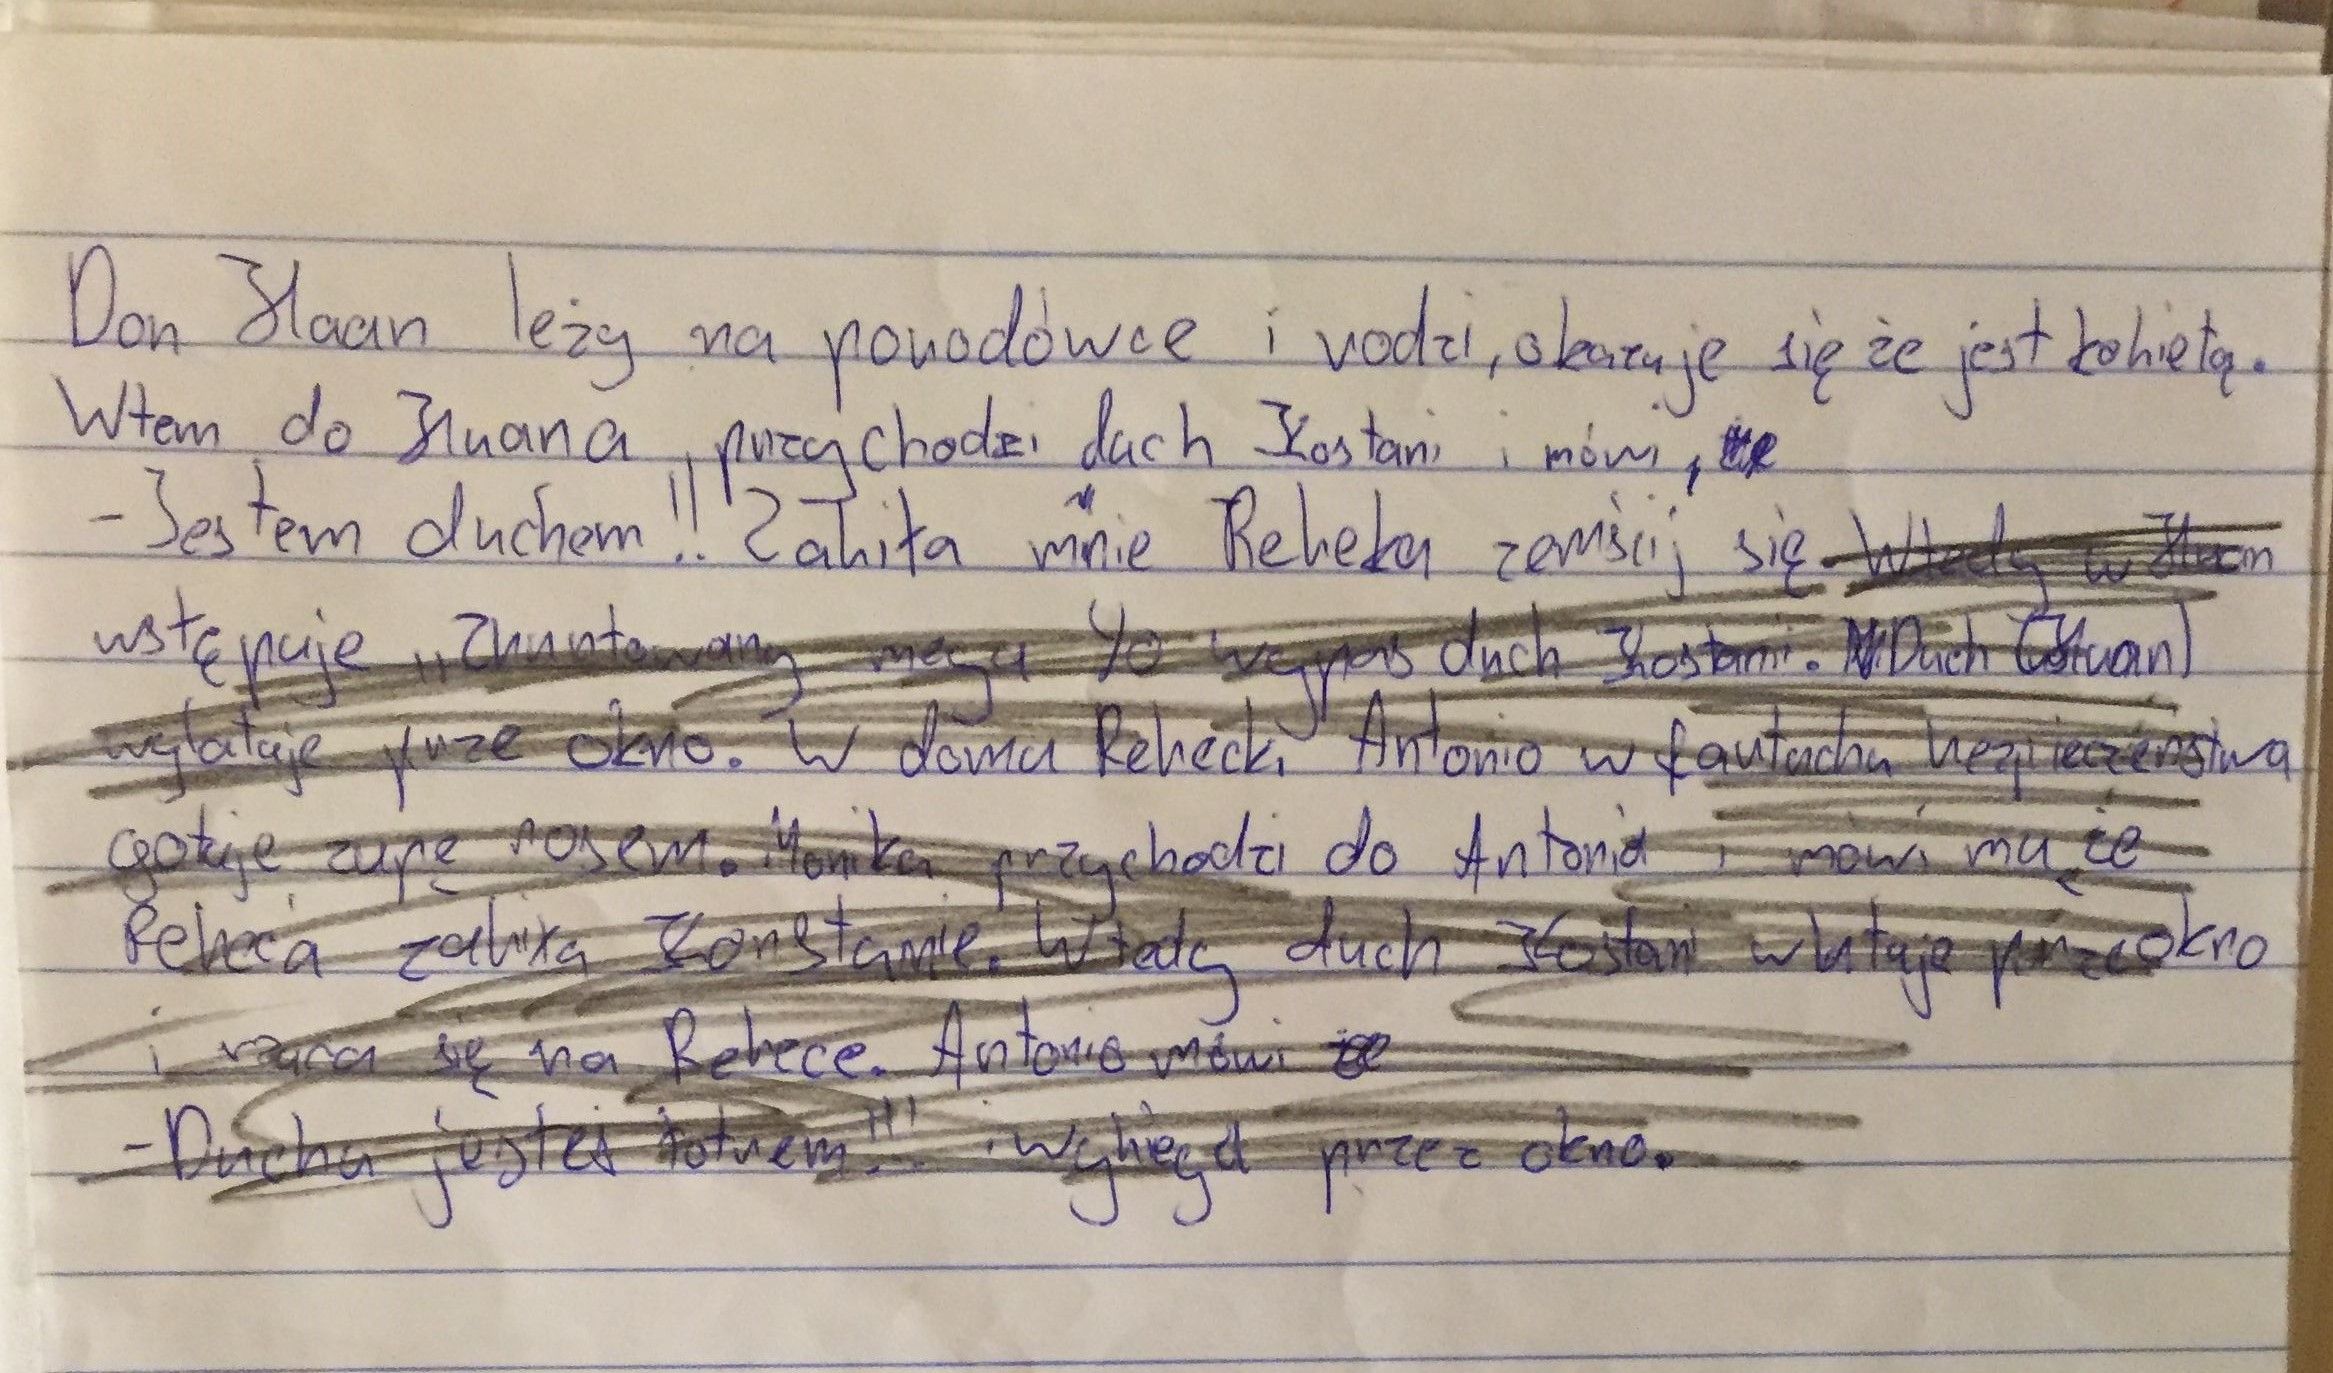 Don Huan leży na porodówce i rodzi, okazuje się że jest kobietą.
Wtem do Huana przychodzi duch Kostani i mówi,
- Jestem duchem!! Zabiła mnie Rebeka zemścij się. Wtedy w Huan
wstępuje „Zbuntowany mega yo wypas duch Kostani. Duch (Huan)
wylatuje prze okno. W domu Rebecki Antonio w fartuchu bezpieczeństwa
gotuje zupę rosem. Monika przychodzi do Antonia i mówi mu że
Rebeca zabiła Konstanie. Wtedy duch Kostani wlatuje przez okno
i rzuca się na Rebece. Antonio mówi że
- Duchu jesteś łotrem!!! i wybiega przez okno.